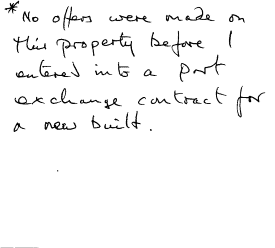 *No offers were made on
this property before I
entered into a part
exchange contract for
a new built.